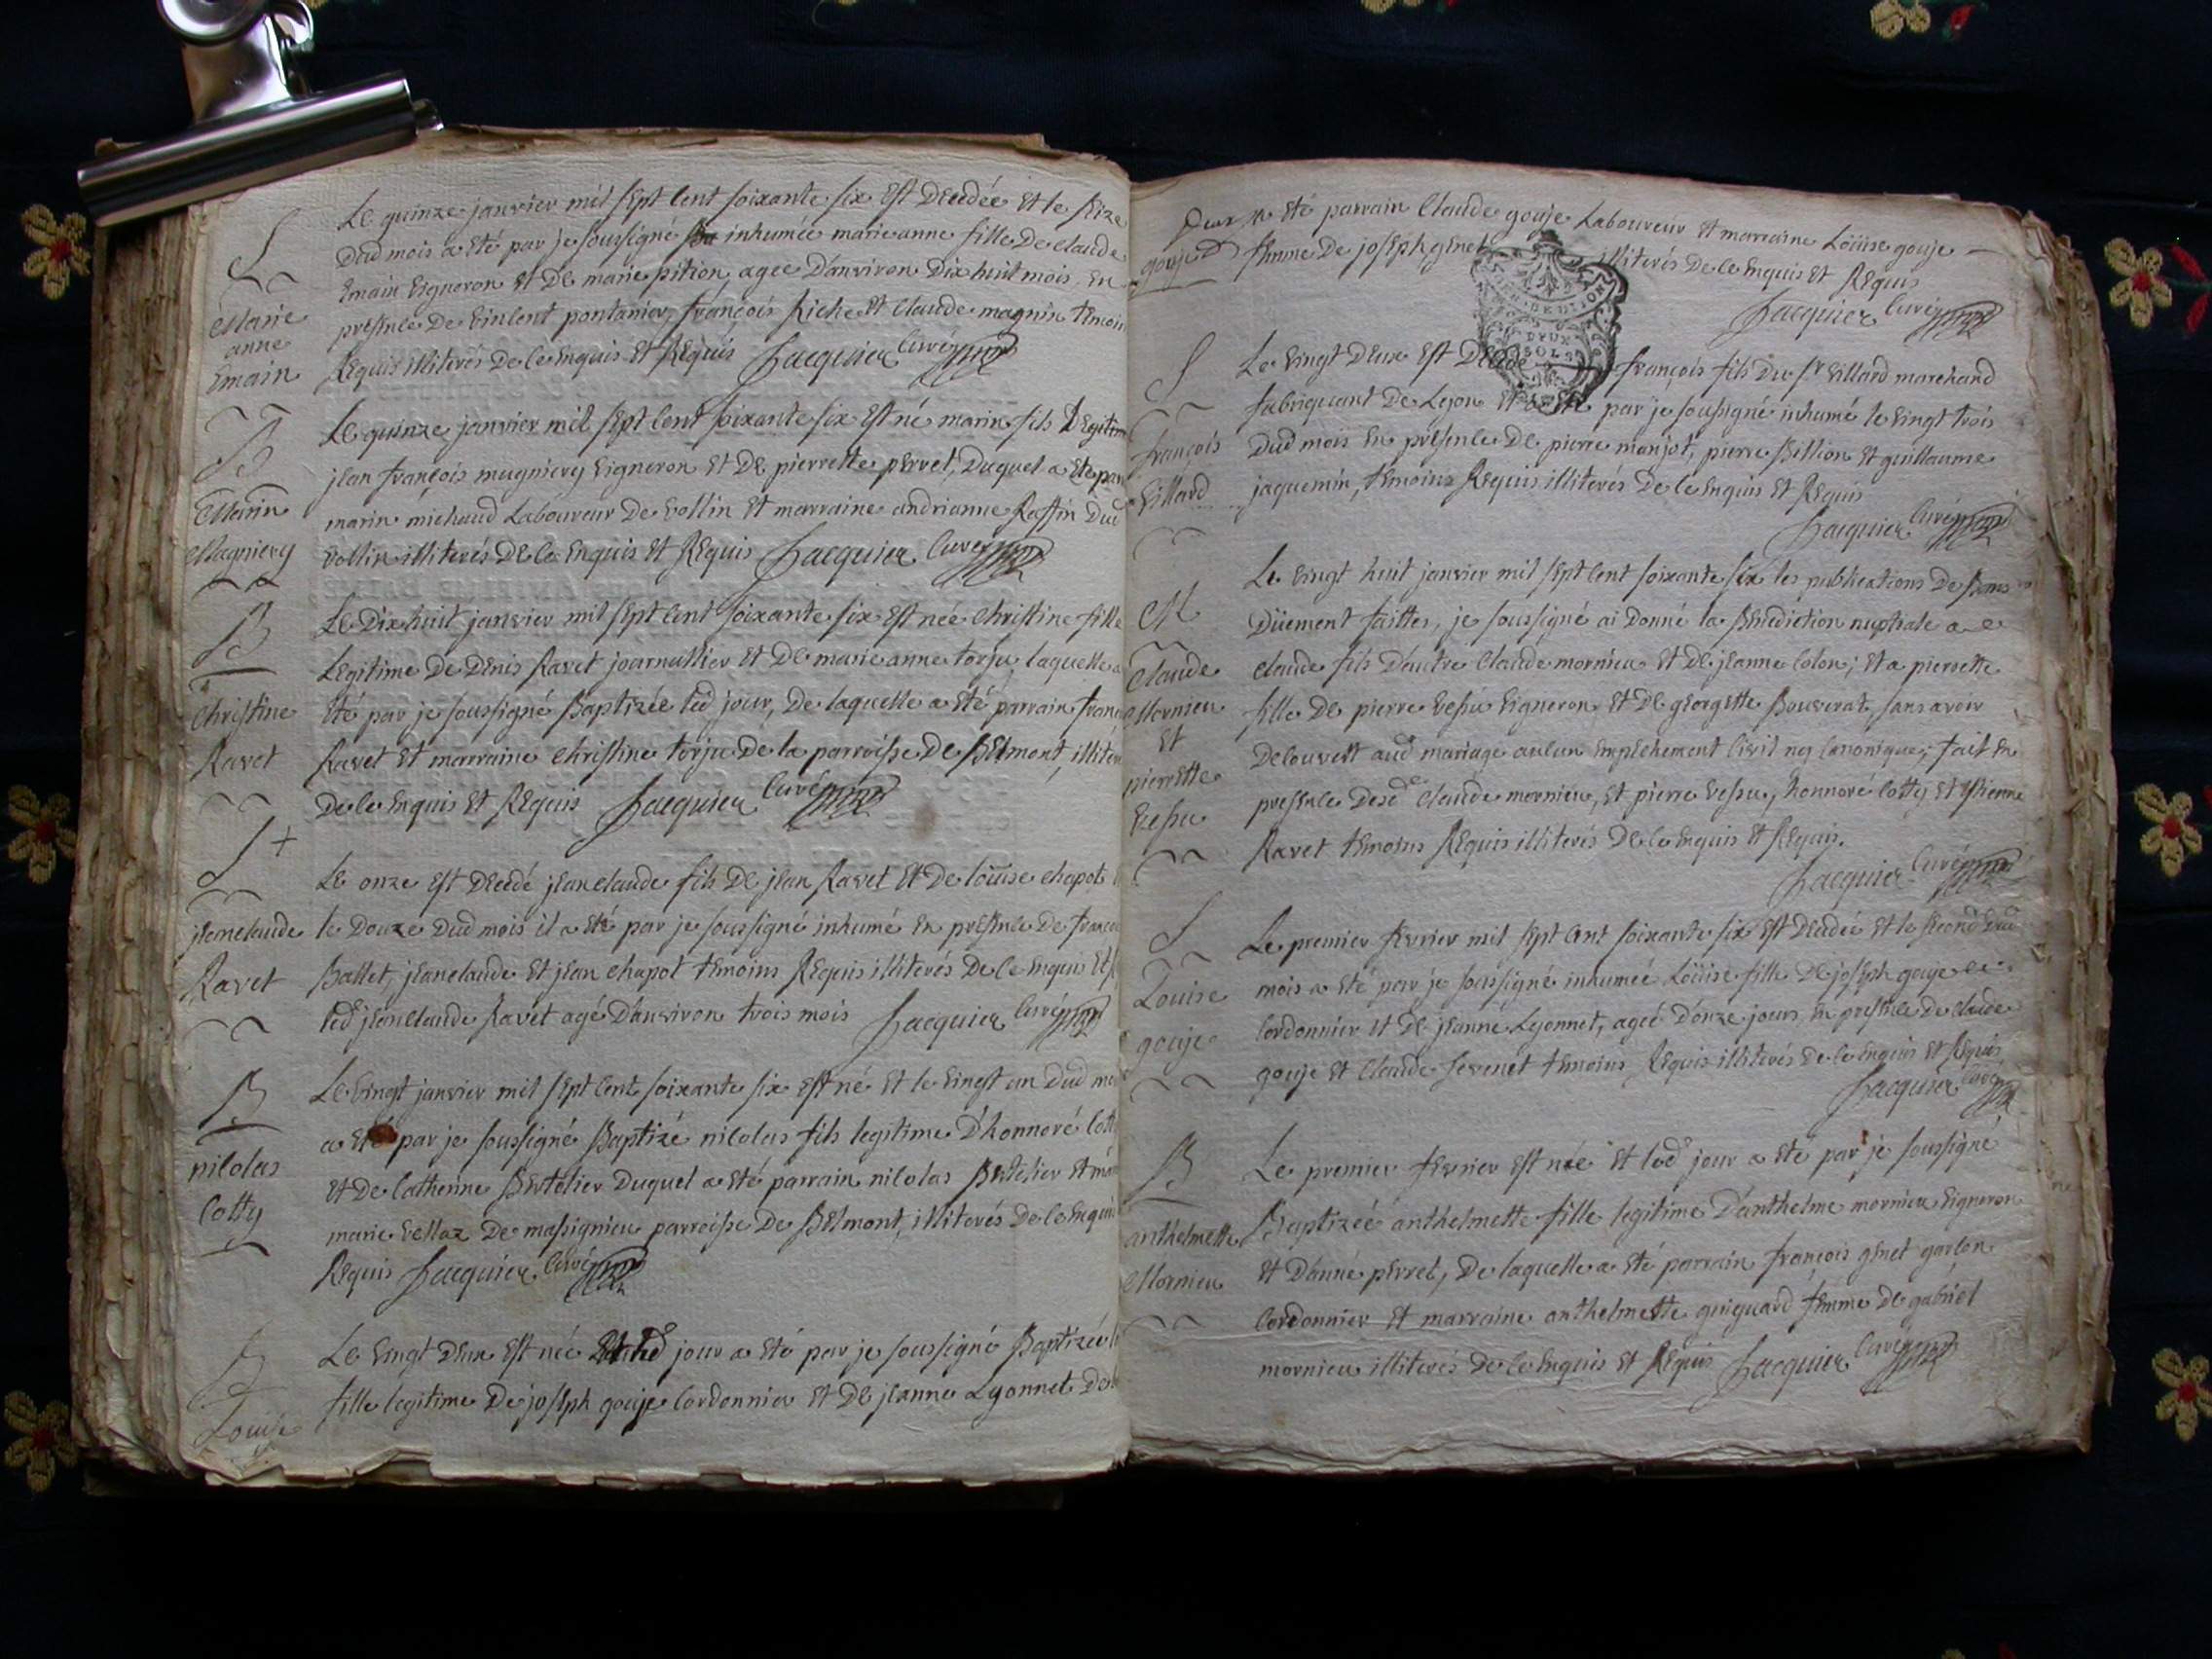 S
Marie
anne
Emain
Le quinze janvier mil sept cent soixante six est decedée et le seize
dud mois a eté par je soussigné inhumée marieanne fille de claude
Emain vigneron et de marie pition agée d'anviron dix huit mois en
presence de vincent pontanier, françois Riche et claude magnin temoin
Requis illiterés de ce enquis et Requis Jacquier curé
B
Marin
Mugniery
Le quinze janvier mil sept cent soixante six est né marin fils Legitim
jean françois mugniery vigneron et de pierrette perret, duquel a eté par
marin michaud Laboureur de vollin et marraine andrianne Raffin dud
vollin illiterés de ce enquis et Requis Jacquier curé
B
Christine
Ravet
Le dix huit janvier mil sept cent soixante six est née christine fille
Legitime de denis Ravet journallier et de marieanne torju laquelle a
été par je soussigné Baptizée led jour, de laquelle a eté parrain franc
Ravet et marraine christine torju de la parroisse de Belmont, illiter
de ce enquis et Requis Jacquier curé
S +
jeanclaude
Ravet
Le onze est decedé jeanclaude fils de jean Ravet et de loüise chapot
le douze dud mois il a eté par je soussigné inhumé en presence de françois
Ballet, jeanclaude et jean chapot temoins Requis illiterés de ce enquis et
led jeanclaude Ravet agé d'anviron trois mois Jacquier curé
B
nicolas
Cotty
Le vingt janvier mil sept cent soixante six est né et le vingt un dud mo
a eté par je soussigné Baptizé nicolas fils legitime d'honnoré cott
et de catherine Bertelier duquel a eté parrain nicolas Bertelier et ma
marie vellaz de massignieu parroisse de Belmont, illiterés de ce enquis
Requis Jacquier curé
B
Louise
Le vingt deux est née et led jour a eté par je soussigné Baptizée
fille legitime de joseph gouje cordonnier et de jeanne Lyonnet de
gouje
a eté parrain claude gouje Laboureur et marraine Loüise gouje
femme de joseph genet illiterés de ce enquis et Requis
Jacquier curé
DEUX
SOLS
S
françois
Villard
Le vingt deux est decedé françois fils du Sr villard marchand
fabriquant de Lyon et a eté par je soussigné inhumé le vingt trois
dud mois en presence de pierre manjot, pierre Bittion et guillaume
jaquemin, temoins Requis illiterés de ce enquis et Requis
Jacquier curé
M
Claude
Mornieu
et
pierrette
Vessu
Le vingt huit janvier mil sept cent soixante six les publications de Bans
düement faittes, je soussigné ai donné la Benediction nuptiale a
claude fils d'autre claude mornieu et de jeanne colon; et a pierrette
fille de pierre vessu vigneron et de georgette Bouverat, sans avoir
decouvert aud mariage aucun empechement civil ny canonique; fait en
presence desd claude mornieu, et pierre vessu, honnoré cotty et etienne
Ravet temoins Requis illiterés de ce enquis et Requis.
Jacquier curé
S
Louise
gouje
Le premier fevrier mil sept cent soixante six est decedée et le second dud
mois a eté par je soussigné inhumeé Loüise fille de joseph gouje
cordonnier et de jeanne Lyonnet, ageé d'onze jours en presence de claude
gouje et claude sevenet temoins Requis illiterés de ce enquis et Requis
Jacquier curé
B
anthelmette
Mornieu
Le premier fevrier est née et led jour a eté par je soussigné
Baptizeé anthelmette fille legitime d'anthelme mornieu vigneron
et d'anne perret, de laquelle a eté parrain françois genet garcon
cordonnier et marraine anthelmette guiguard femme de gabriel
mornieu illiterés de ce enquis et Requis Jacquier curé